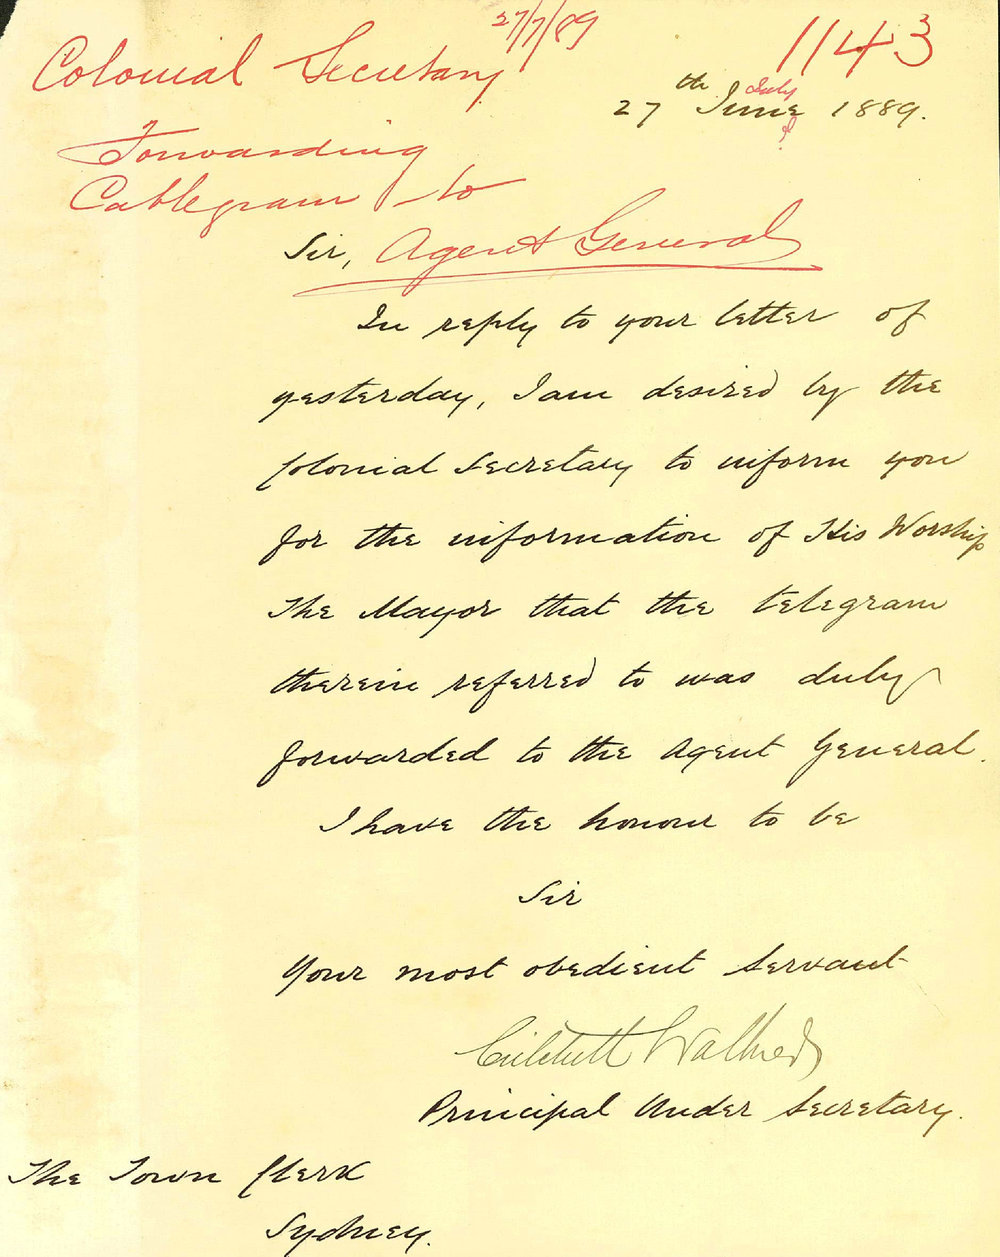 27/7/89
1143
Colonial Secretary
27th June July 1889.
?
Forwarding
Cablegram to
Agent General
Sir,
In reply to your letter of
yesterday, I am desired by the
Colonial Secretary to inform you
for the information of His Worship
The Mayor that the telegram
therein referred to was duly
forwarded to the Agent General.
I have the honour to be
Sir
Your most obedient servant
Critchett Walker
Principal Under Secretary.
The Town Clerk
Sydney.